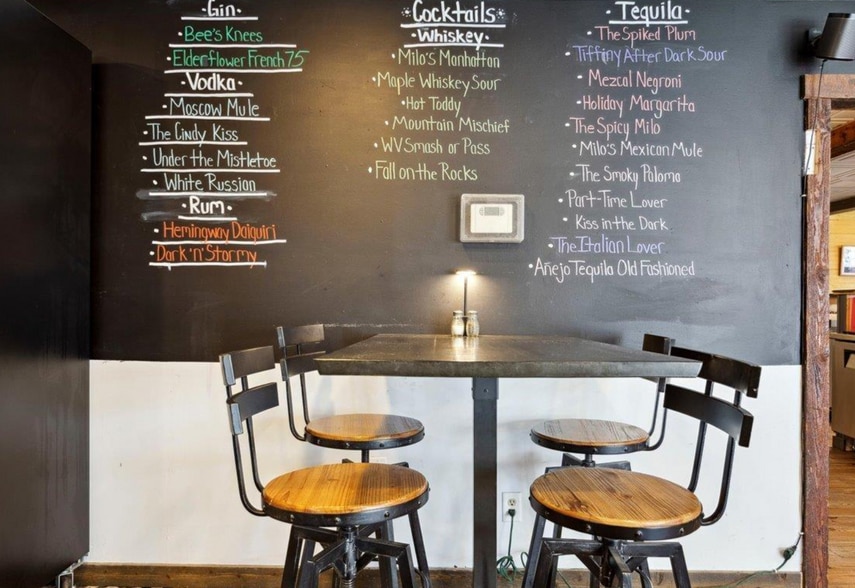 ·Gin·
·Bee's Knees
·Elderflower French 75
·Vodka·
·Moscow Mule
·The Cindy Kiss
·Under the Mistletoe
·White Russian
·Rum·
·Hemingway Daiquiri
·Dark 'n' Stormy
*Cocktails*
·Whiskey·
·Milo's Manhattan
·Maple Whiskey Sour
·Hot Toddy
·Mountain Mischief
·WV Smash or Pass
·Fall on the Rocks
·Tequila·
·The Spiked Plum
·Tiffiny After Dark Sour
·Mezcal Negroni
·Holiday Margarita
·The Spicy Milo
·Milo's Mexican Mule
·The Smoky Paloma
·Part-Time Lover
·Kiss in the Dark
·The Italian Lover
·Añejo Tequila Old Fashioned